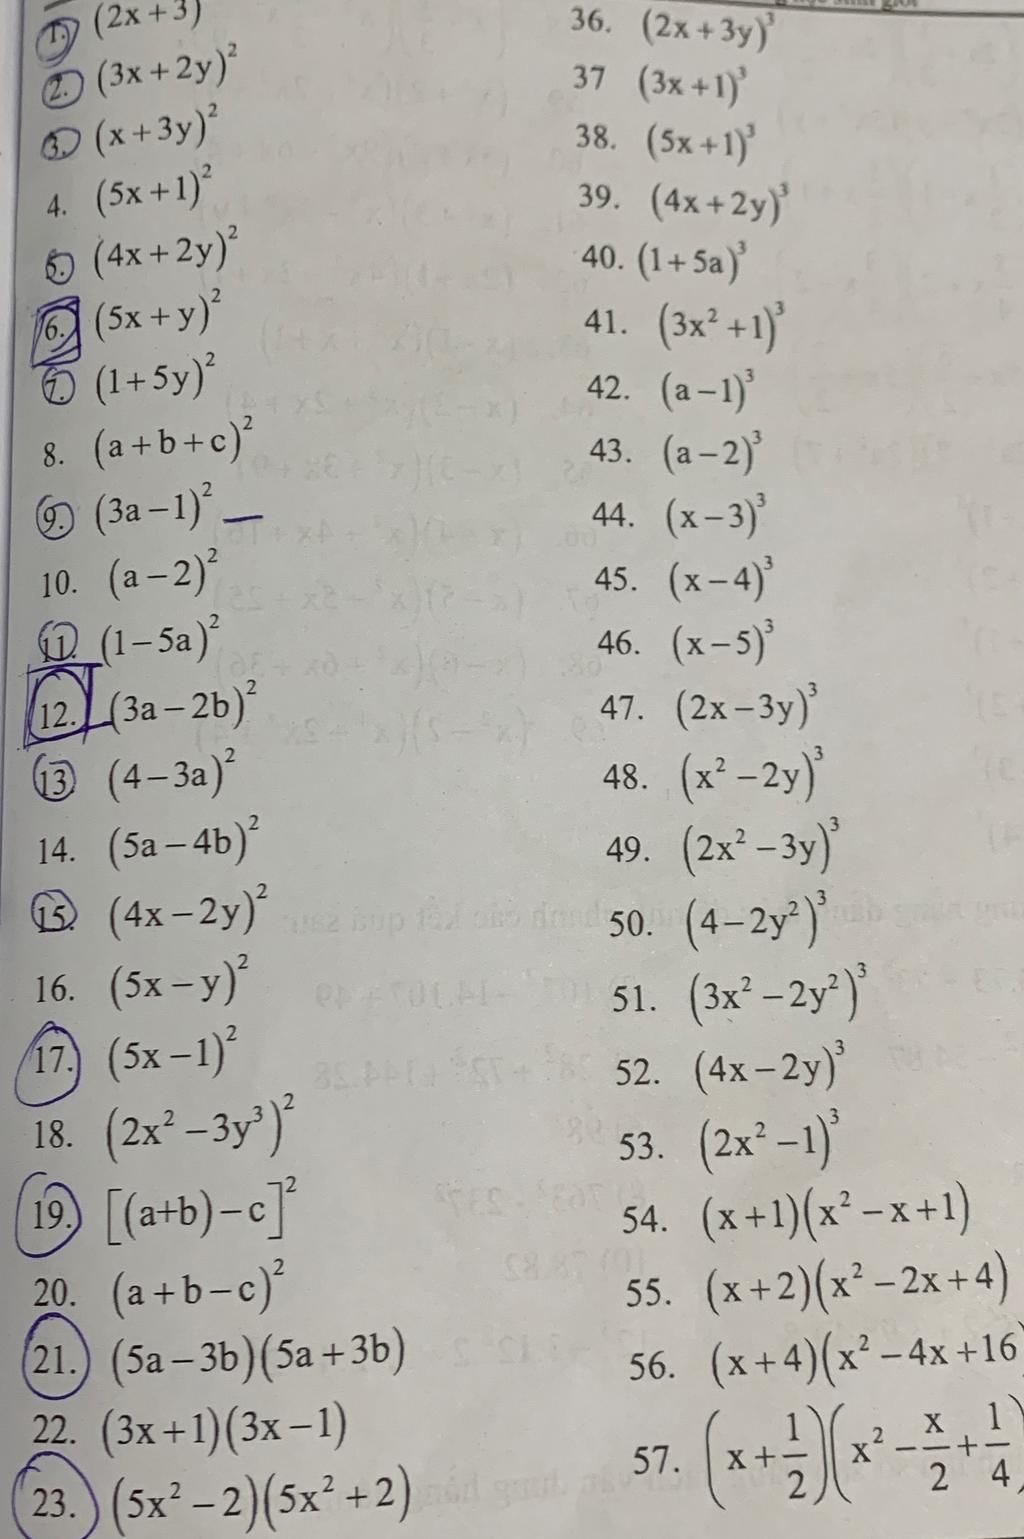 1. (2x+3)
2. (3x+2y)²
3. (x+3y)²
4. (5x+1)²
5. (4x+2y)²
6. (5x+y)²
7. (1+5y)²
8. (a+b+c)²
9. (3a−1)²
10. (a−2)²
11. (1−5a)²
12. (3a−2b)²
13 (4−3a)²
14. (5a−4b)²
15. (4x−2y)²
16. (5x−y)²
17. (5x−1)²
18. (2x²−3y³)²
19. [(a+b)−c]²
20. (a+b−c)²
21. (5a−3b)(5a+3b)
22. (3x+1)(3x−1)
23. (5x²−2)(5x²+2)
36. (2x+3y)³
37 (3x+1)³
38. (5x+1)³
39. (4x+2y)³
40. (1+5a)³
41. (3x²+1)³
42. (a−1)³
43. (a−2)³
44. (x−3)³
45. (x−4)³
46. (x−5)³
47. (2x−3y)³
48. (x²−2y)³
49. (2x²−3y)³
50. (4−2y²)³
51. (3x²−2y²)³
52. (4x−2y)³
53. (2x²−1)³
54. (x+1)(x²−x+1)
55. (x+2)(x²−2x+4)
56. (x+4)(x²−4x+16)
57. (x+1/2)(x²−x/2+1/4)